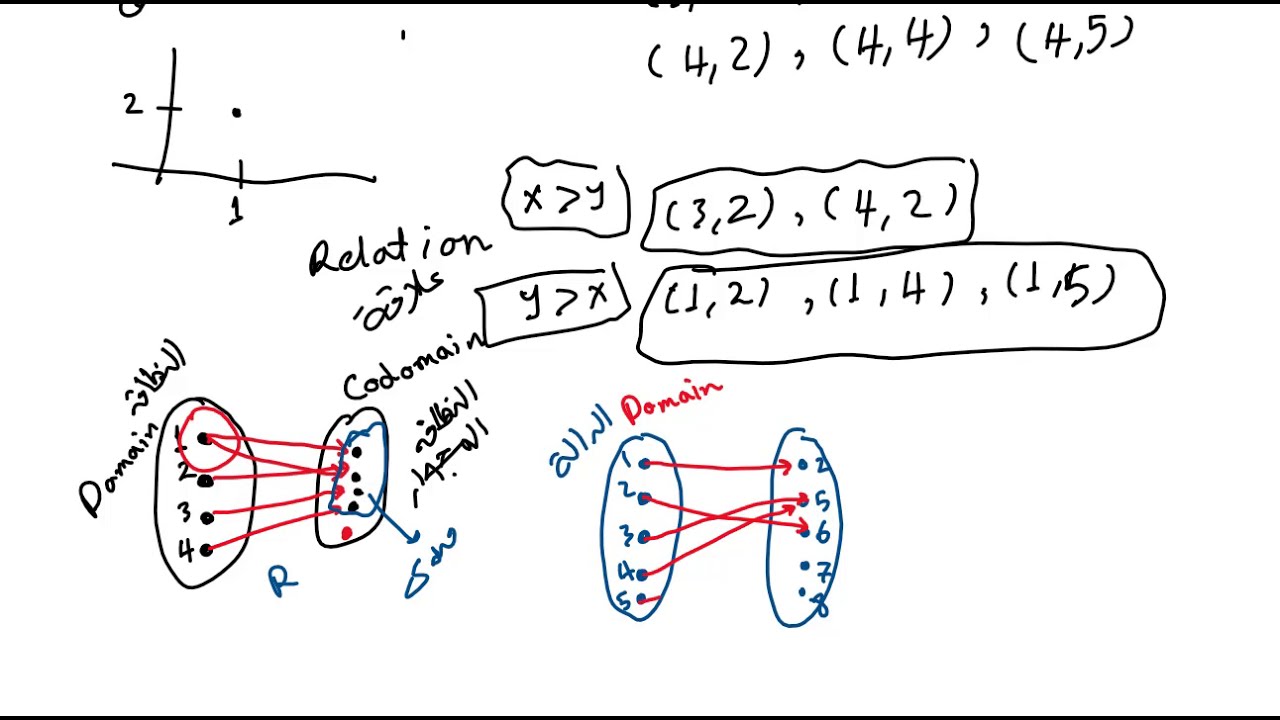 (4,2) , (4,4) , (4,5)
2
1
x > y
(3,2) , (4,2)
Relation
علاقة
y > x
(1,2) , (1,4) , (1,5)
Domain النطاق
Codomain
النطاق
المقابل
1
2
3
4
R
مدى
الدالة
Domain
1
2
3
4
5
2
5
6
7
8